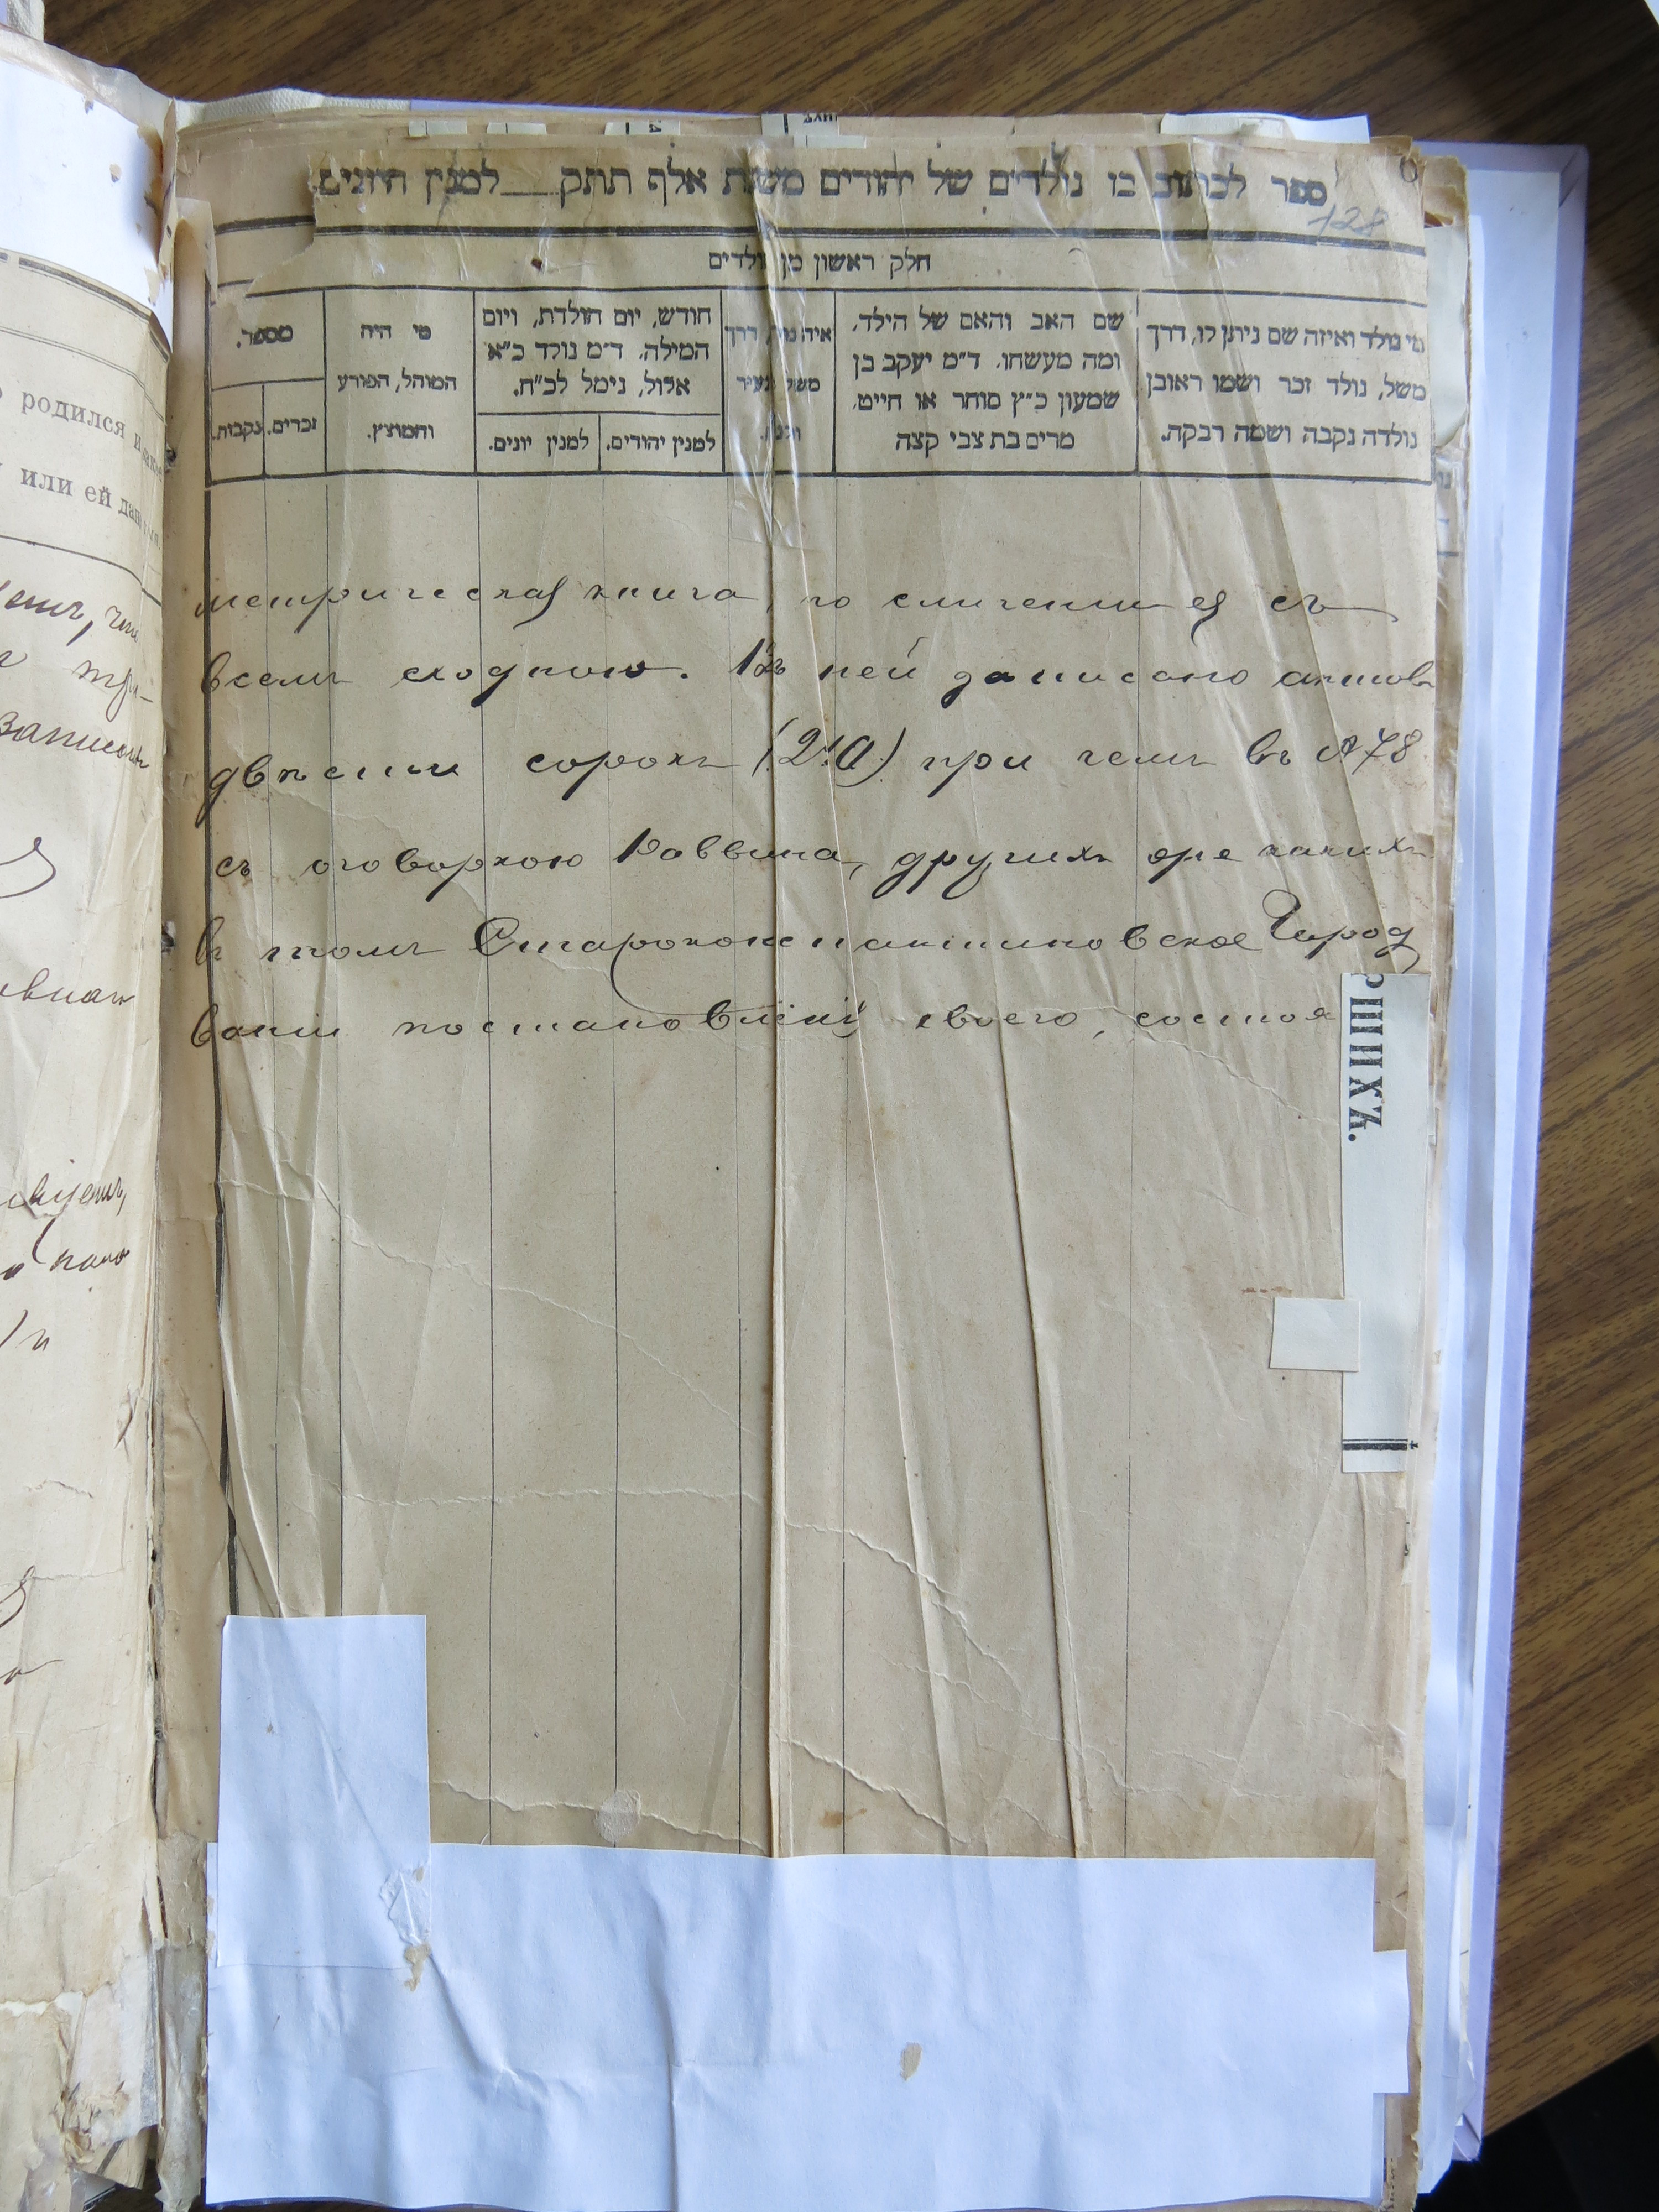 ספר לכתוב בו נולדים של יהודים משנת אלף תתק למנין היונים
128
חלק ראשון מן נולדים
מי נולד ואיזה שם ניתן לו, דרך
משל, נולד זכר ושמו ראובן
נולדה נקבה ושמה רבקה.
שם האב והאם של הילד,
ומה מעשהו. ד״מ יעקב בן
שמעון כ״ץ סוחר או חייט,
מרים בת צבי קצה
דרך
חודש, יום הולדת, ויום
המילה. ד״מ נולד כ״א
אלול, נימל לכ״ח.
למנין יהודים.
למנין יונים.
מי היה
המוהל, הפורע
והמוצץ.
מספר.
זכרים.
נקבות.
родился
или ей
метрическая книга, по сличении ея съ
всемъ сходною. Въ ней записано актовъ
двѣсти сорокъ (240) при чемъ въ № 78
съ оговоркою Раввина, другихъ же какихъ
въ томъ Староконстантиновская Город
вании постановленія своего, состоя
РШИХЪ.